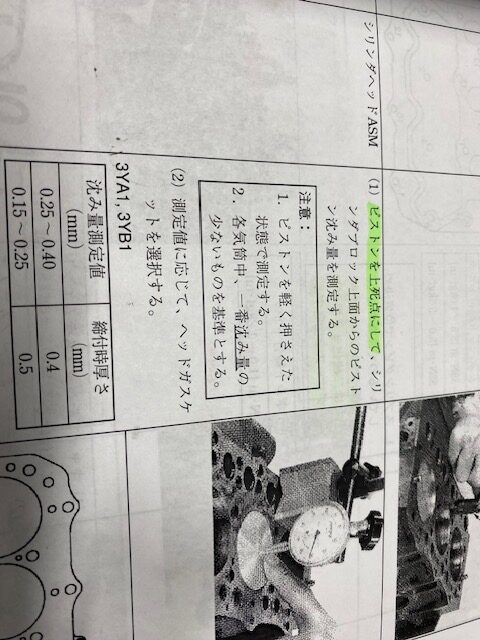 シリンダヘッド ASM
(1) ピストンを上死点にして、シリ
ンダブロック上面からのピスト
ン沈み量を測定する。
注意：
1. ピストンを軽く押さえた
状態で測定する。
2. 各気筒中、一番沈み量の
少ないものを基準とする。
(2) 測定値に応じて、ヘッドガスケ
ットを選択する。
3YA1, 3YB1
沈み量測定値 (mm) 締付時厚さ (mm)
0.25～0.40 0.4
0.15～0.25 0.5